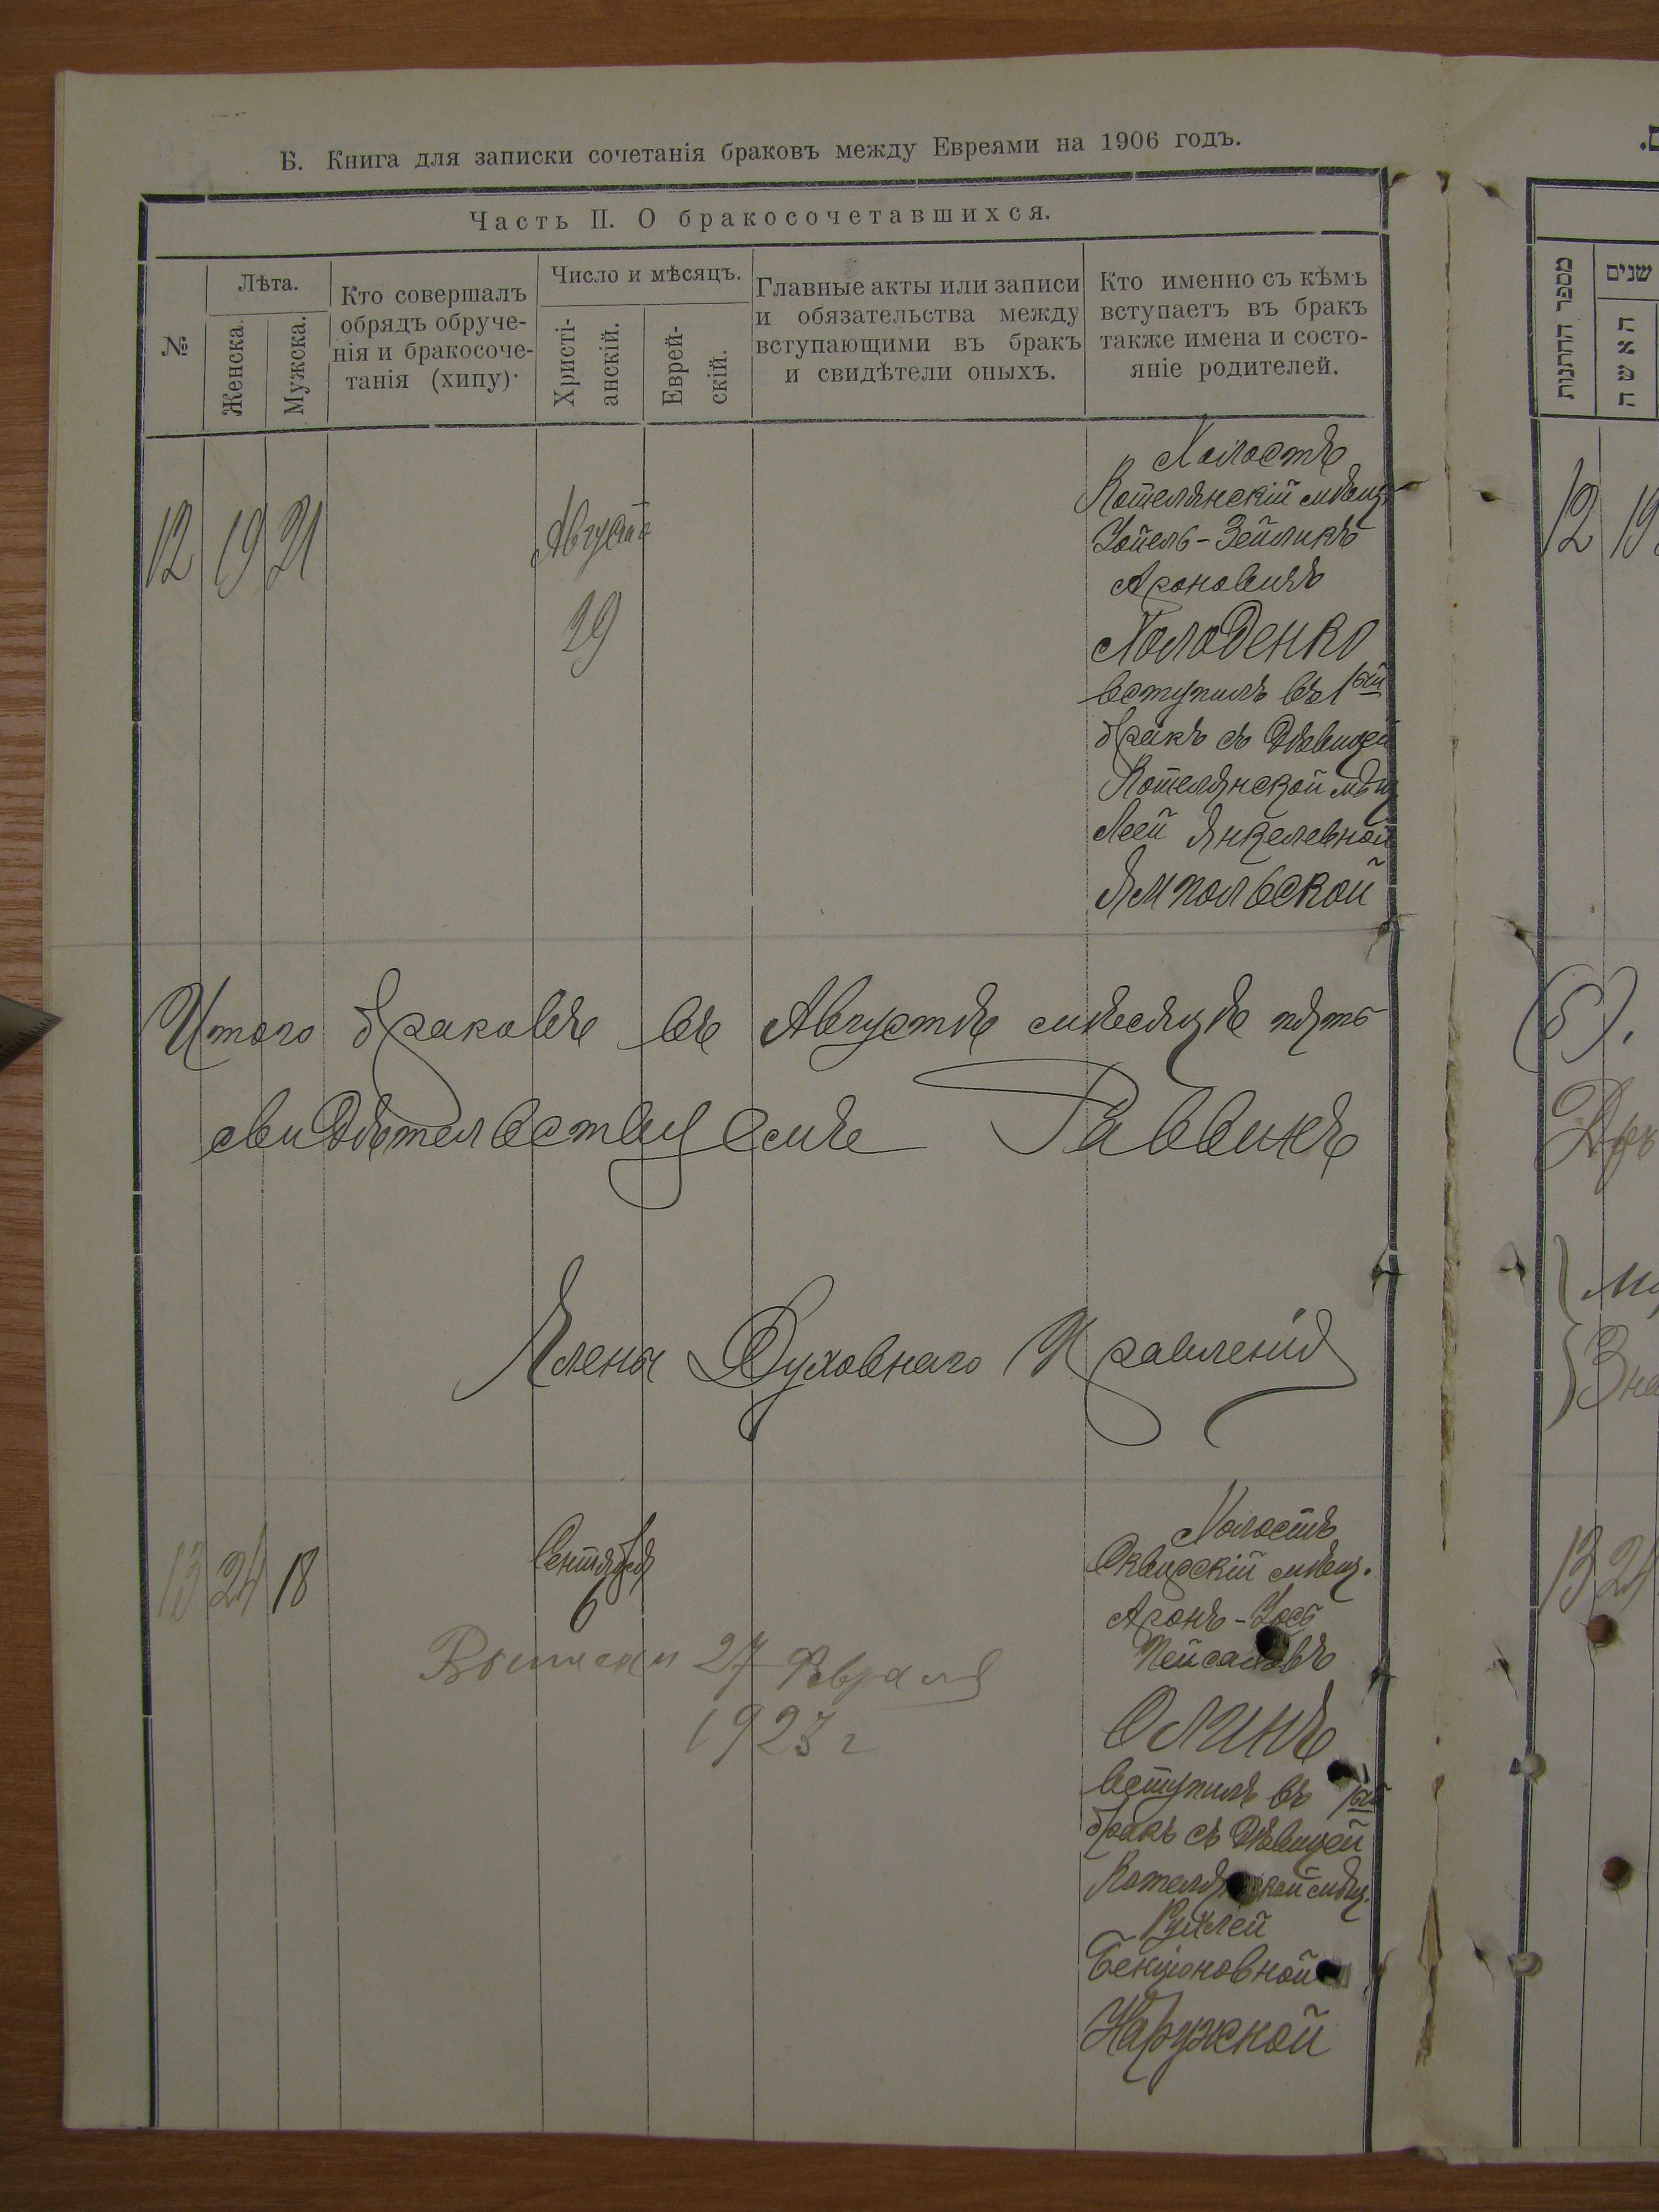 Б. Книга для записки сочетанія браковъ между Евреями на 1906 годъ.
Часть II. О бракосочетавшихся.
№
Лѣта.
Женска.
Мужска.
Кто совершалъ
обрядъ обруче-
нія и бракосоче-
танія (хипу).
Число и мѣсяцъ.
Христі-
анскій.
Еврей-
скій.
Главные акты или записи
и обязательства между
вступающими въ бракъ
и свидѣтели оныхъ.
Кто именно съ кѣмъ
вступаетъ въ бракъ
также имена и состо-
яніе родителей.
12 19 21
Августа
29
Холостъ
Котелянскій мѣщ.
Іойель-Зейликъ
Ароновичъ
Холоденко
вступилъ въ 1ый
бракъ съ дѣвицей
Котелянской мѣщ
Леей Янкелевной
Ямпольской
Итого браковъ въ Августѣ мѣсяцѣ пять
свидѣтельствуемъ Раввинъ
Члены Духовнаго Правленія
13 24 18
Сентября
6
Холостъ
Сквирскій мѣщ.
Аронъ-Іось
вступилъ въ 1ый
бракъ съ дѣвицей
мѣщ.
Рухлей
Бенціоновной
Наружной
27 Февраля
1923 г
מספר החתונות
שנים
האשה
12 19
(5).
13 24